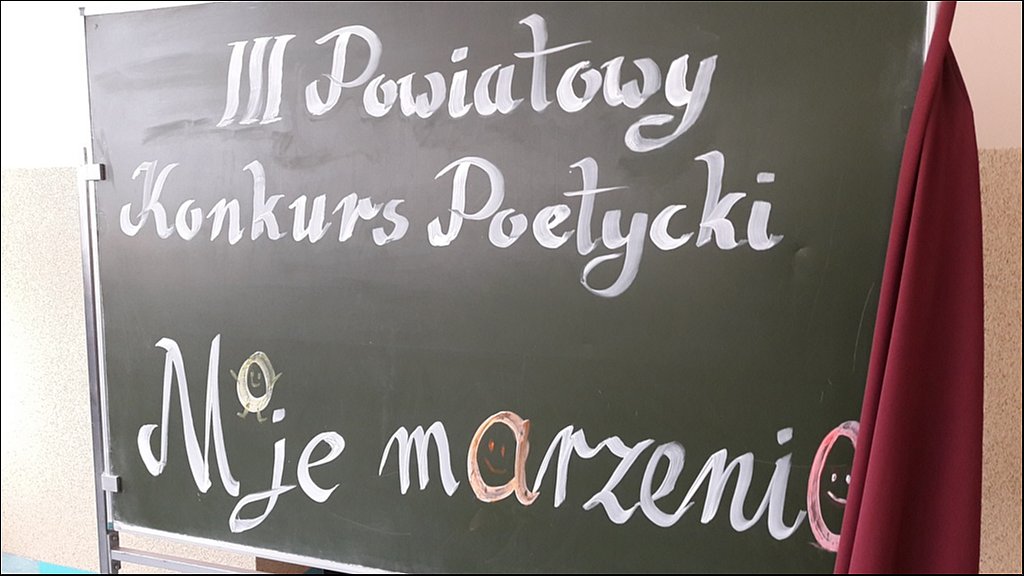 III Powiatowy
Konkurs Poetycki
Moje marzenia